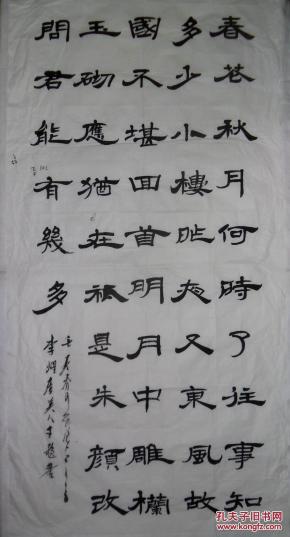 春花秋月何時了往事知
多少小樓昨夜又東風故
國不堪回首明月中雕欄
玉砌應猶在祇是朱顏改
問君能有幾多
孔夫子旧书网